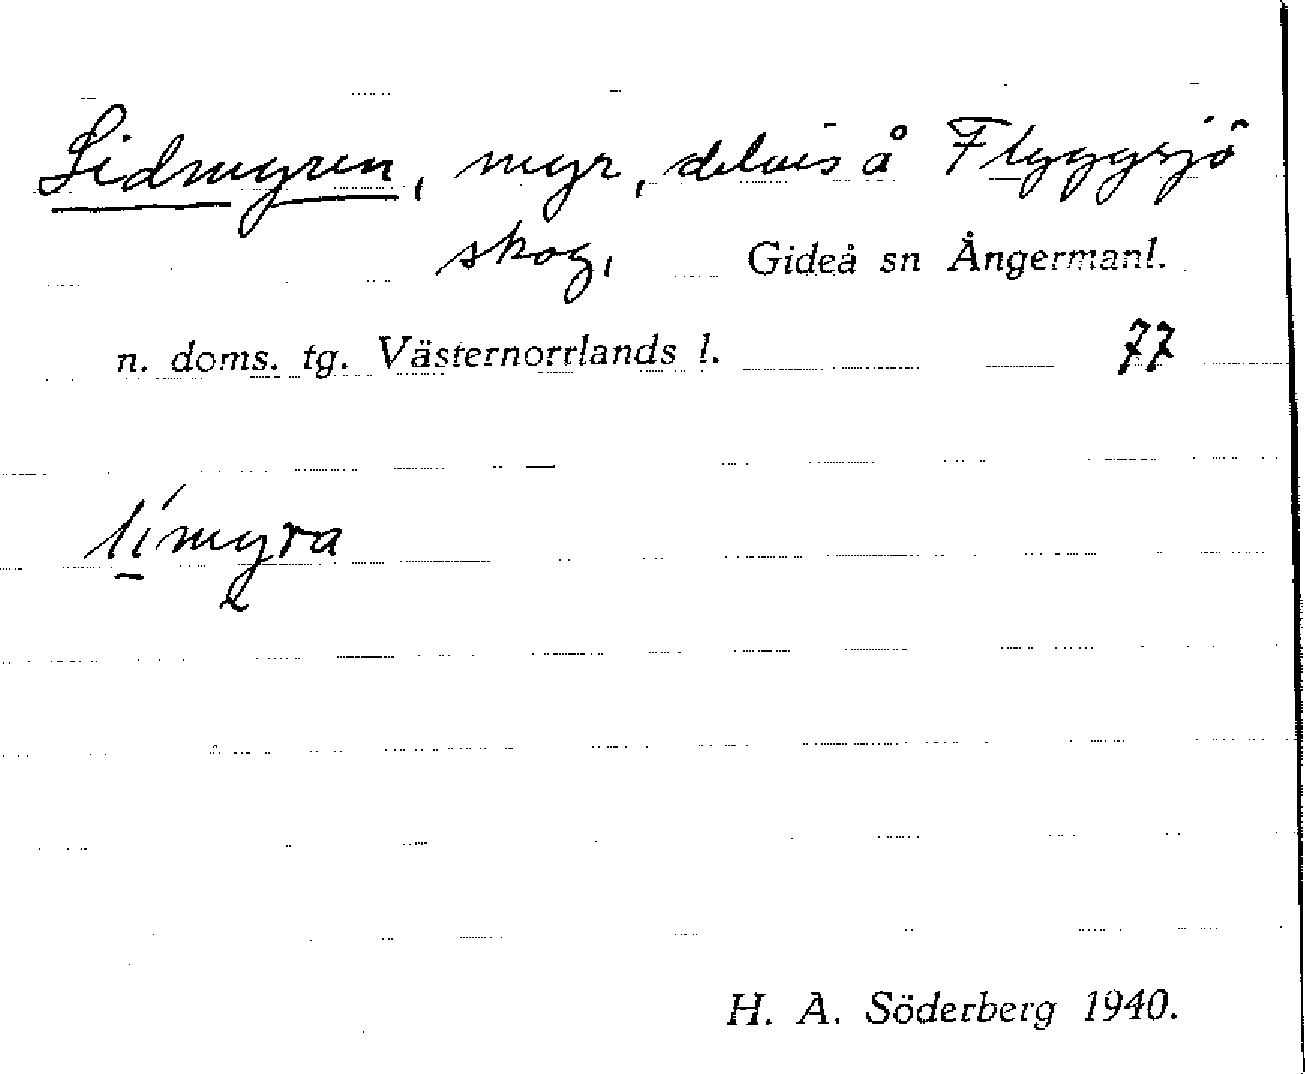 Lidmyren, myr, delvis å Flyggsjö
skog, Gideå sn Ångermanl.
n. doms. tg. Västernorrlands l. 77
límyra
H. A. Söderberg 1940.